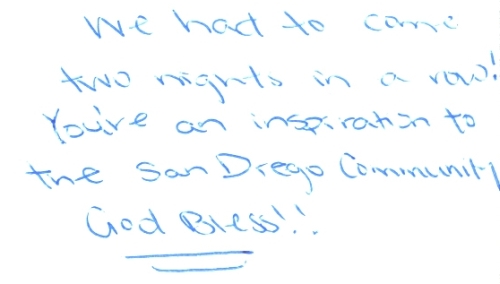 We had to come
two nights in a row!
You're an inspiration to
the San Diego Community
God Bless!!